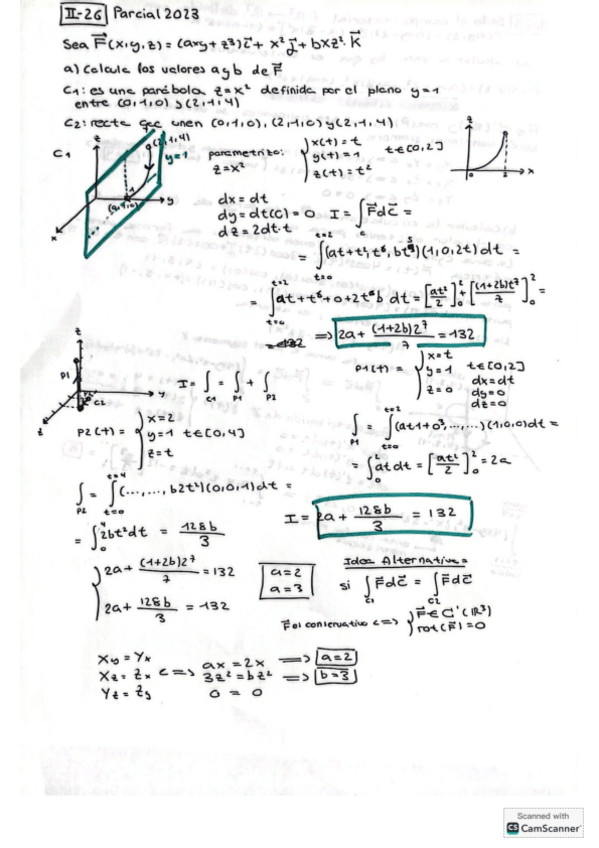 II-26 Parcial 2023
Sea F⃗(x,y,z) = (axy + z³)i⃗ + x²j⃗ + bxz². K⃗
a) Calcula los valores a y b de F⃗
C1: es una parábola z=x² definida por el plano y=1
entre (0,1,0) y (2,1,4)
C2: recta que unen (0,1,0), (2,1,0) y (2,1,4)
C1
z
(2,1,4)
y=1
(0,1,0)
y
x
parametrizo:
z=x²
x(t) = t
y(t) = 1
z(t) = t²
t∈[0,2]
z
0
2
x
dx = dt
dy = dt(0) = 0
dz = 2dt·t
I = ∫ F⃗dC⃗ =
c
t=2
= ∫(at+t⁶, t², bt⁵)(1,0,2t)dt =
t=0
t=2
= ∫ at + t⁶ + 0 + 2t⁶b dt = [at²/2]₀² + [(1+2b)t⁷/7]₀² =
t=0
⇒ 2a + (1+2b)2⁷/7 = 132
z
P1
C2
y
I = ∫ = ∫ + ∫
C1 P1 P2
P1(t) =
x=t
y=1
z=0
t∈[0,2]
dx=dt
dy=0
dz=0
P2(t) =
x=2
y=1
z=t
t∈[0,4]
t=2
∫ = ∫(at1+0³,...,...)(1,0,0)dt =
P1 t=0
= ∫₀² at dt = [at²/2]₀² = 2a
t=4
∫ = ∫(...,...,b2t²)(0,0,1)dt =
P2 t=0
= ∫₀⁴ 2bt²dt = 128b/3
I = 2a + 128b/3 = 132
2a + (1+2b)2⁷/7 = 132
2a + 128b/3 = 132
a=2
a=3
Idea Alternativa =
si ∫ F⃗dC⃗ = ∫ F⃗dC⃗
C1 C2
F⃗ es conservativo <=>
F⃗ ∈ C¹(ℝ³)
rot(F⃗) = 0
Xy = Yx
Xz = Zx <=>
Yz = Zy
ax = 2x => a=2
3z² = bz² => b=3
0 = 0
Scanned with
CS CamScanner